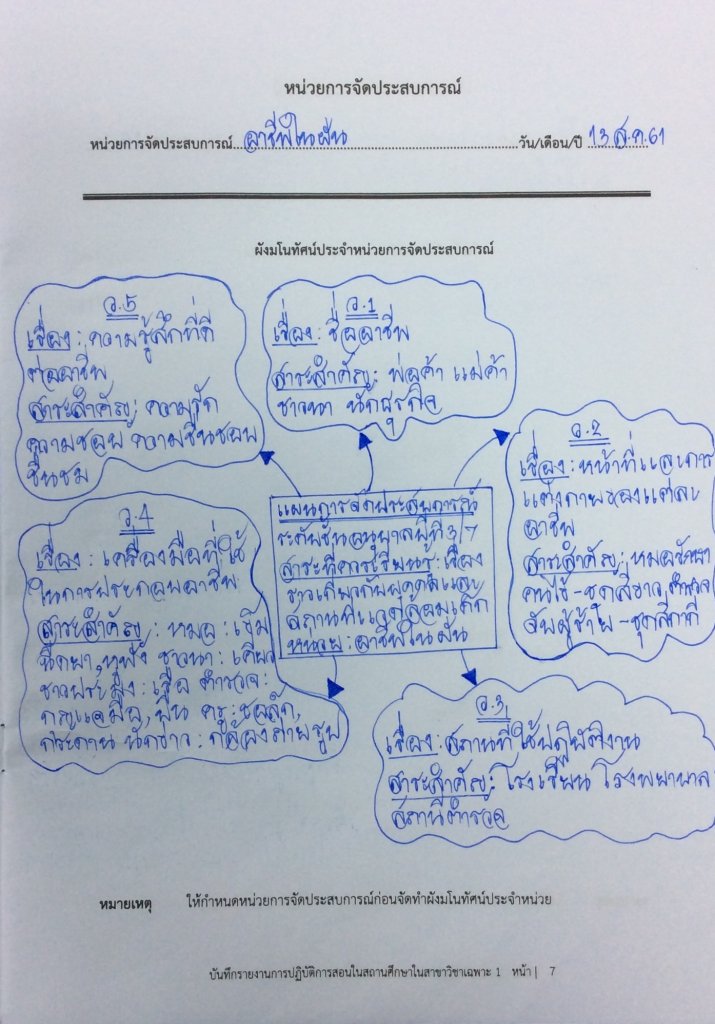 หน่วยการจัดประสบการณ์
หน่วยการจัดประสบการณ์ อาชีพในฝัน วัน/เดือน/ปี 13 ส.ค. 61
ผังมโนทัศน์ประจำหน่วยการจัดประสบการณ์
จ.1
เรื่อง : ชื่ออาชีพ
สาระสำคัญ : พ่อค้า แม่ค้า
ชาวนา นักธุรกิจ
อ.2
เรื่อง : หน้าที่และการ
แต่งกายของแต่ละ
อาชีพ
สาระสำคัญ : หมอรักษา
คนไข้ - ชุดสีขาว, ตำรวจ
จับผู้ร้าย - ชุดสีกากี
ว.3
เรื่อง : สถานที่ใช้ปฏิบัติงาน
สาระสำคัญ : โรงเรียน โรงพยาบาล
สถานีตำรวจ
ว.4
เรื่อง : เครื่องมือที่ใช้
ในการประกอบอาชีพ
สาระสำคัญ : หมอ : เข็ม
ฉีดยา, หูฟัง ชาวนา : เคียว
ชาวประมง : เรือ ตำรวจ :
กุญแจมือ, ปืน ครู : ชอล์ก,
กระดาน นักข่าว : กล้องถ่ายรูป
ว.5
เรื่อง : ความรู้สึกที่ดี
ต่ออาชีพ
สาระสำคัญ : ความรัก
ความชอบ ความชื่นชอบ
ชื่นชม
แผนการจัดประสบการณ์
ระดับชั้นอนุบาลปีที่ 3/7
สาระที่ควรเรียนรู้ : เรื่อง
ราวเกี่ยวกับบุคคลและ
สถานที่แวดล้อมเด็ก
หน่วย : อาชีพในฝัน
หมายเหตุ ให้กำหนดหน่วยการจัดประสบการณ์ก่อนจัดทำผังมโนทัศน์ประจำหน่วย
บันทึกรายงานการปฏิบัติการสอนในสถานศึกษาในสาขาวิชาเฉพาะ 1 หน้า | 7